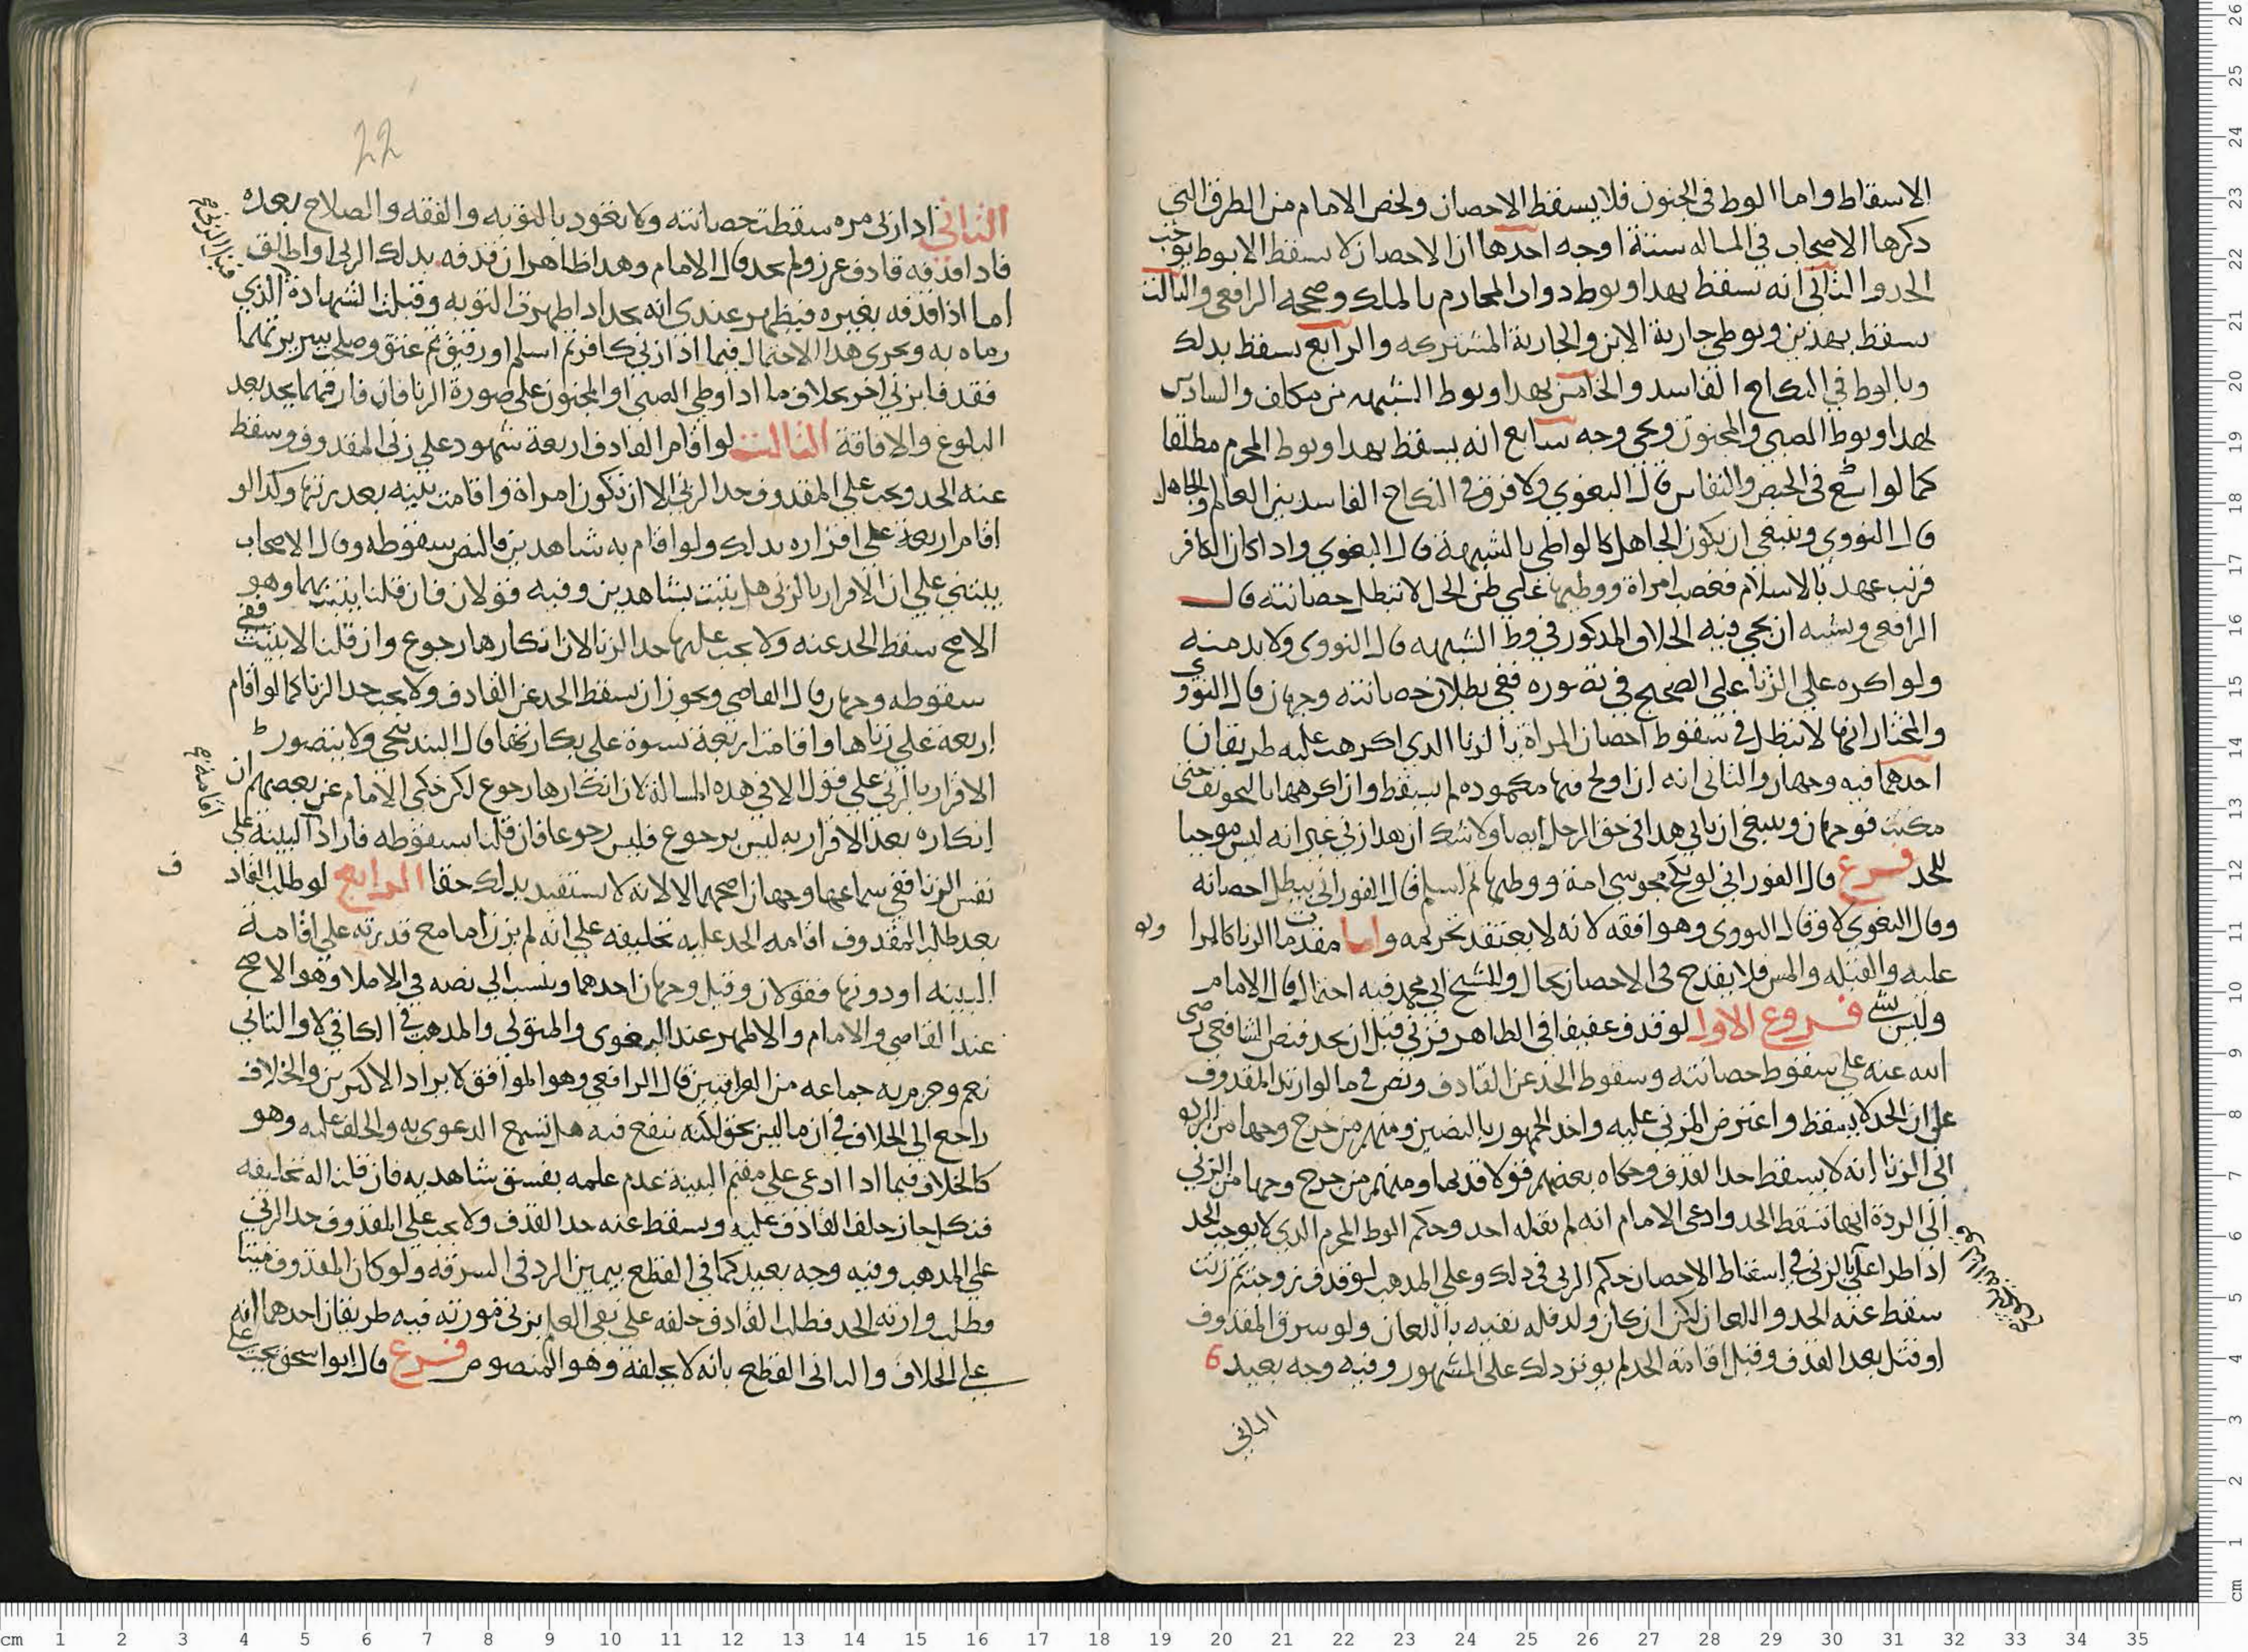 الاسقاط واما الوط في الجنون فلا يسقط الاحصان ولخص الامام من الطرق التي
ذكرها الاصحاب في المساله ستة اوجه احدها ان الاحصان لا يسقط الا بوط يوجب
الحد والثاني انه يسقط بهذا وبوط ذوات المحارم بالملك وصححه الرافعي والثالث
يسقط بهذين وبوطي جارية الابن والجارية المشتركه والرابع يسقط بذلك
وبالوط في النكاح الفاسد والخامس بهذا وبوط الشبهه من مكلف والسادس
بهذا وبوط الصبي والمجنون ويجي وجه سابع انه يسقط بهذا وبوط المحرم مطلقا
كما لو وقع في الحيض والنفاس قال البغوي ولا فرق في النكاح الفاسد بين العالم والجاهل
قال النووي وينبغي ان يكون الجاهل كالواطي بالشبهة قال البغوي واذا كان الكافر
قريب عهد بالاسلام فغصب امراة ووطيها على ظن الحل لا تبطل حصانته قال
الرافعي ويشبه ان يجي فيه الخلاف المذكور في وط الشبهه قال النووي ولا بد منه
ولو اكره على الزنا على الصحيح في تصوره ففي بطلان حصانته وجهان قال النووي
والمختار انها لا تبطل في سقوط احصان المراة بالزنا الذي اكرهت عليه طريقان
احدهما فيه وجهان والثاني انه ان اولج فيها مكموده لم يسقط وان اكرهها بالتخويف حتى
مكنت فوجهان وينبغي ان ياتي هذا في حق الرجل ايضا ولا شك ان هذا زني غير انه ليس موجبا
للحد فرع قال الفوراني لو نكح مجوسي امة ووطيها ثم اسلم قال الفوراني يبطل احصانه
وقال البغوي لا وقال النووي وهو افقه لانه لا يعتقد تحريمه واما مقدمات الزنا كالمرا
ولو
عليه والقبله والمس فلا يقدح في الاحصان بحال وللشيخ ابي محمد فيه احتمال قال الامام
وليس بشي فروع الاول لو قذف عفيفا في الظاهر فزني قبل ان يحد فنص الشافعي رضي
الله عنه على سقوط حصانته وسقوط الحد عن القاذف ونص في ما لو ارتد المقذوف
على ان الحد لا يسقط واعترض المزني عليه واخذ الجمهور بالنصين ومنهم من خرج وجها من
الى الزنا انه لا يسقط حد القذف وحكاه بعضهم قولا قديما ومنهم من خرج وجها من الزني
الى الردة انها تسقط الحد وادعى الامام انه لم يقله احد وحكم الوط المحرم الذي لا يوجب الحد
اذا طرا على الزني في اسقاط الاحصان حكم الزني في ذلك وعلى المذهب لو قذف زوجته ثم زنت
سقط عنه الحد واللعان لكن ان كان ولد فله نفيه باللعان ولو سرق المقذوف
او قتل بعد القذف وقبل اقامة الحد لم يوثر ذلك على المشهور وفيه وجه بعيد
الثاني
22
الثاني اذا زنى مره سقطت حصانته ولا تعود بالتوبه والفقه والصلاح بعده
فاذا قذفه قاذف عزر ولم يحد قال الامام وهذا ظاهر ان قذفه بذلك الزنى او اطلق
اما اذا قذفه بغيره فيظهر عندي انه يحد اذا ظهرت التوبه وقبلت الشهادة الذي
رماه به ويجري هذا الاحتمال فيما اذا زنى كافر ثم اسلم او رقيق ثم عتق وصلحت
فقذفا بزني اخر بخلاف ما اذا وطي الصبي او المجنون على صورة الزنا فان قاذفهما يحد بعد
البلوغ والافاقة الثالث لو اقام القاذف اربعة شهود على زنى المقذوف سقط
عنه الحد ويجب على المقذوف حد الزنى الا ان تكون امراة واقامت بينه بعذرتها وكذا لو
اقام اربعة على اقراره بذلك ولو اقام به شاهدين فالنص سقوطه وقال الاصحاب
يبتني على ان الاقرار بالزنى هل يثبت بشاهدين وفيه قولان فان قلنا يثبت بهما وهو
الاصح سقط الحد عنه ولا يجب عليها حد الزنا لان انكارها رجوع وان قلنا لا يثبت ففي
سقوطه وجهان قال القاضي ويجوز ان يسقط الحد عن القاذف ولا يجب حد الزنا كما لو اقام
اربعه على زناها واقامت اربعة نسوة على بكارتها قال البندنيجي ولا يتصور
الاقرار بالزني على قول الا في هذه المسالة لان انكارها رجوع لكن حكى الامام عن بعضهم ان
انكاره بعد الاقرار به ليس برجوع فليس رجوعا فان قلنا بسقوطه فاراد البينة على
اقامة
نفس الزنا ففي سماعها وجهان اصحهما لا لانه لا يستفيد بذلك حقا الرابع لو طلب القاذ
ف
بعد طلب المقذوف اقامه الحد عليه تحليفه على انه لم يزن اما مع قدرته على اقامة
البينه او دونها فقولان وقيل وجهان احدهما وينسب الى نصه في الاملا وهو الاصح
عند القاضي والامام والاظهر عند البغوي والمتولي والمذهب في الكافي لا والثاني
نعم وجزم به جماعه من العراقيين قال الرافعي وهو الموافق لايراد الاكثرين والخلاف
راجع الى الخلاف في ان ما ليس بحق لكنه ينفع فيه هل تسمع الدعوى به والحلف عليه وهو
كالخلاف فيما اذا ادعى على مقيم البينة عدم علمه بفسق شاهديه فان قلنا له تحليفه
فنكل جاز حلف القاذف عليه ويسقط عنه حد القذف ولا يجب على المقذوف حد الزني
على المذهب وفيه وجه بعيد كما في القطع بيمين الرد في السرقه ولو كان المقذوف ميتا
وطلب وارثه الحد فطلب القاذف حلفه على نفي العلم بزنى مورثه فيه طريقان احدهما انه
على الخلاف والثاني القطع بانه لا يحلفه وهو المنصوص فرع قال ابو اسحق يجب على